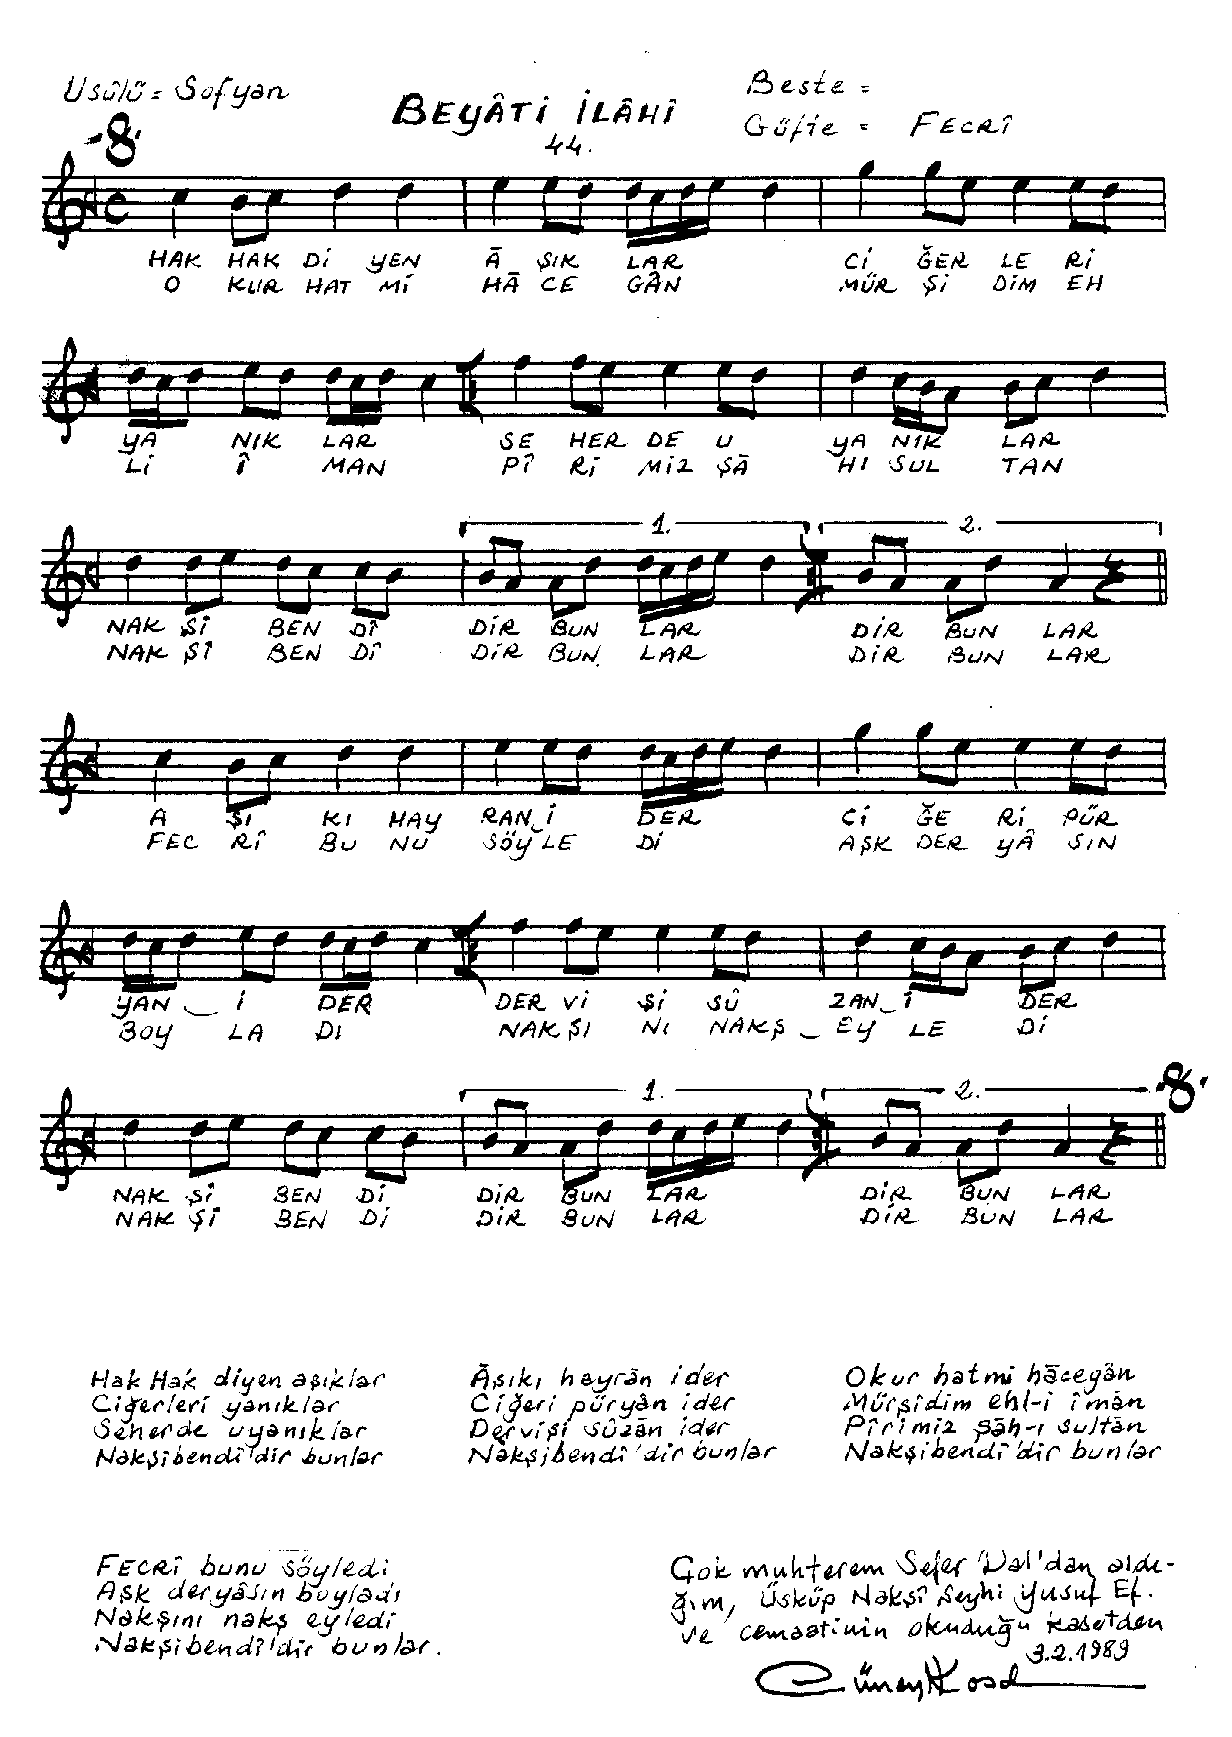 Usûlü = Sofyan
BEYÂTİ İLÂHİ
44.
Beste =
Güfte = FECRÎ
HAK HAK Dİ YEN Â ŞIK LAR Cİ ĞER LE Rİ
O KUR HAT Mİ HÂ CE GÂN MÜR Şİ DİM EH
YA NIK LAR SE HER DE U YA NIK LAR
Lİ Î MAN PÎ Rİ MİZ ŞÂ HI SUL TAN
1. 2.
NAK Şİ BEN DÎ DİR BUN LAR DİR BUN LAR
NAK Şİ BEN DÎ DİR BUN LAR DİR BUN LAR
A ŞI KI HAY RAN İ DER Cİ ĞE Rİ PÜR
FEC RÎ BU NU SÖY LE Dİ AŞK DER YÂ SIN
YAN İ DER DER Vİ Şİ SÛ ZAN İ DER
BOY LA DI NAK ŞI NI NAKŞ EY LE Dİ
1. 2.
NAK Şİ BEN Dİ DİR BUN LAR DİR BUN LAR
NAK ŞÎ BEN Dİ DİR BUN LAR DİR BUN LAR
Hak Hak diyen aşıklar
Ciğerleri yanıklar
Seherde uyanıklar
Nakşibendî'dir bunlar
Âşıkı hayrân ider
Ciğeri püryân ider
Dervişi sûzân ider
Nakşibendî'dir bunlar
Okur hatmi hâcegân
Mürşidim ehl-i îmân
Pîrimiz şâh-ı sultân
Nakşibendî'dir bunlar
FECRÎ bunu söyledi
Aşk deryâsın boyladı
Nakşını nakş eyledi
Nakşibendî'dir bunlar.
Çok muhterem Sefer Dal'dan aldı-
ğım, Üsküp Nakşî Şeyhi Yusuf Ef.
ve cemaatinin okuduğu kasetden
3.2.1989